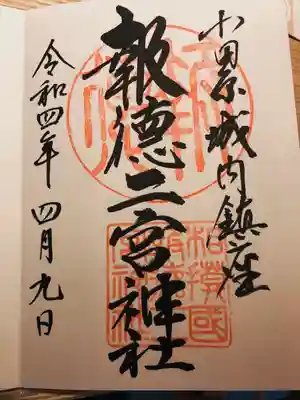 小田原城内鎮座
報徳二宮神社
令和四年四月九日